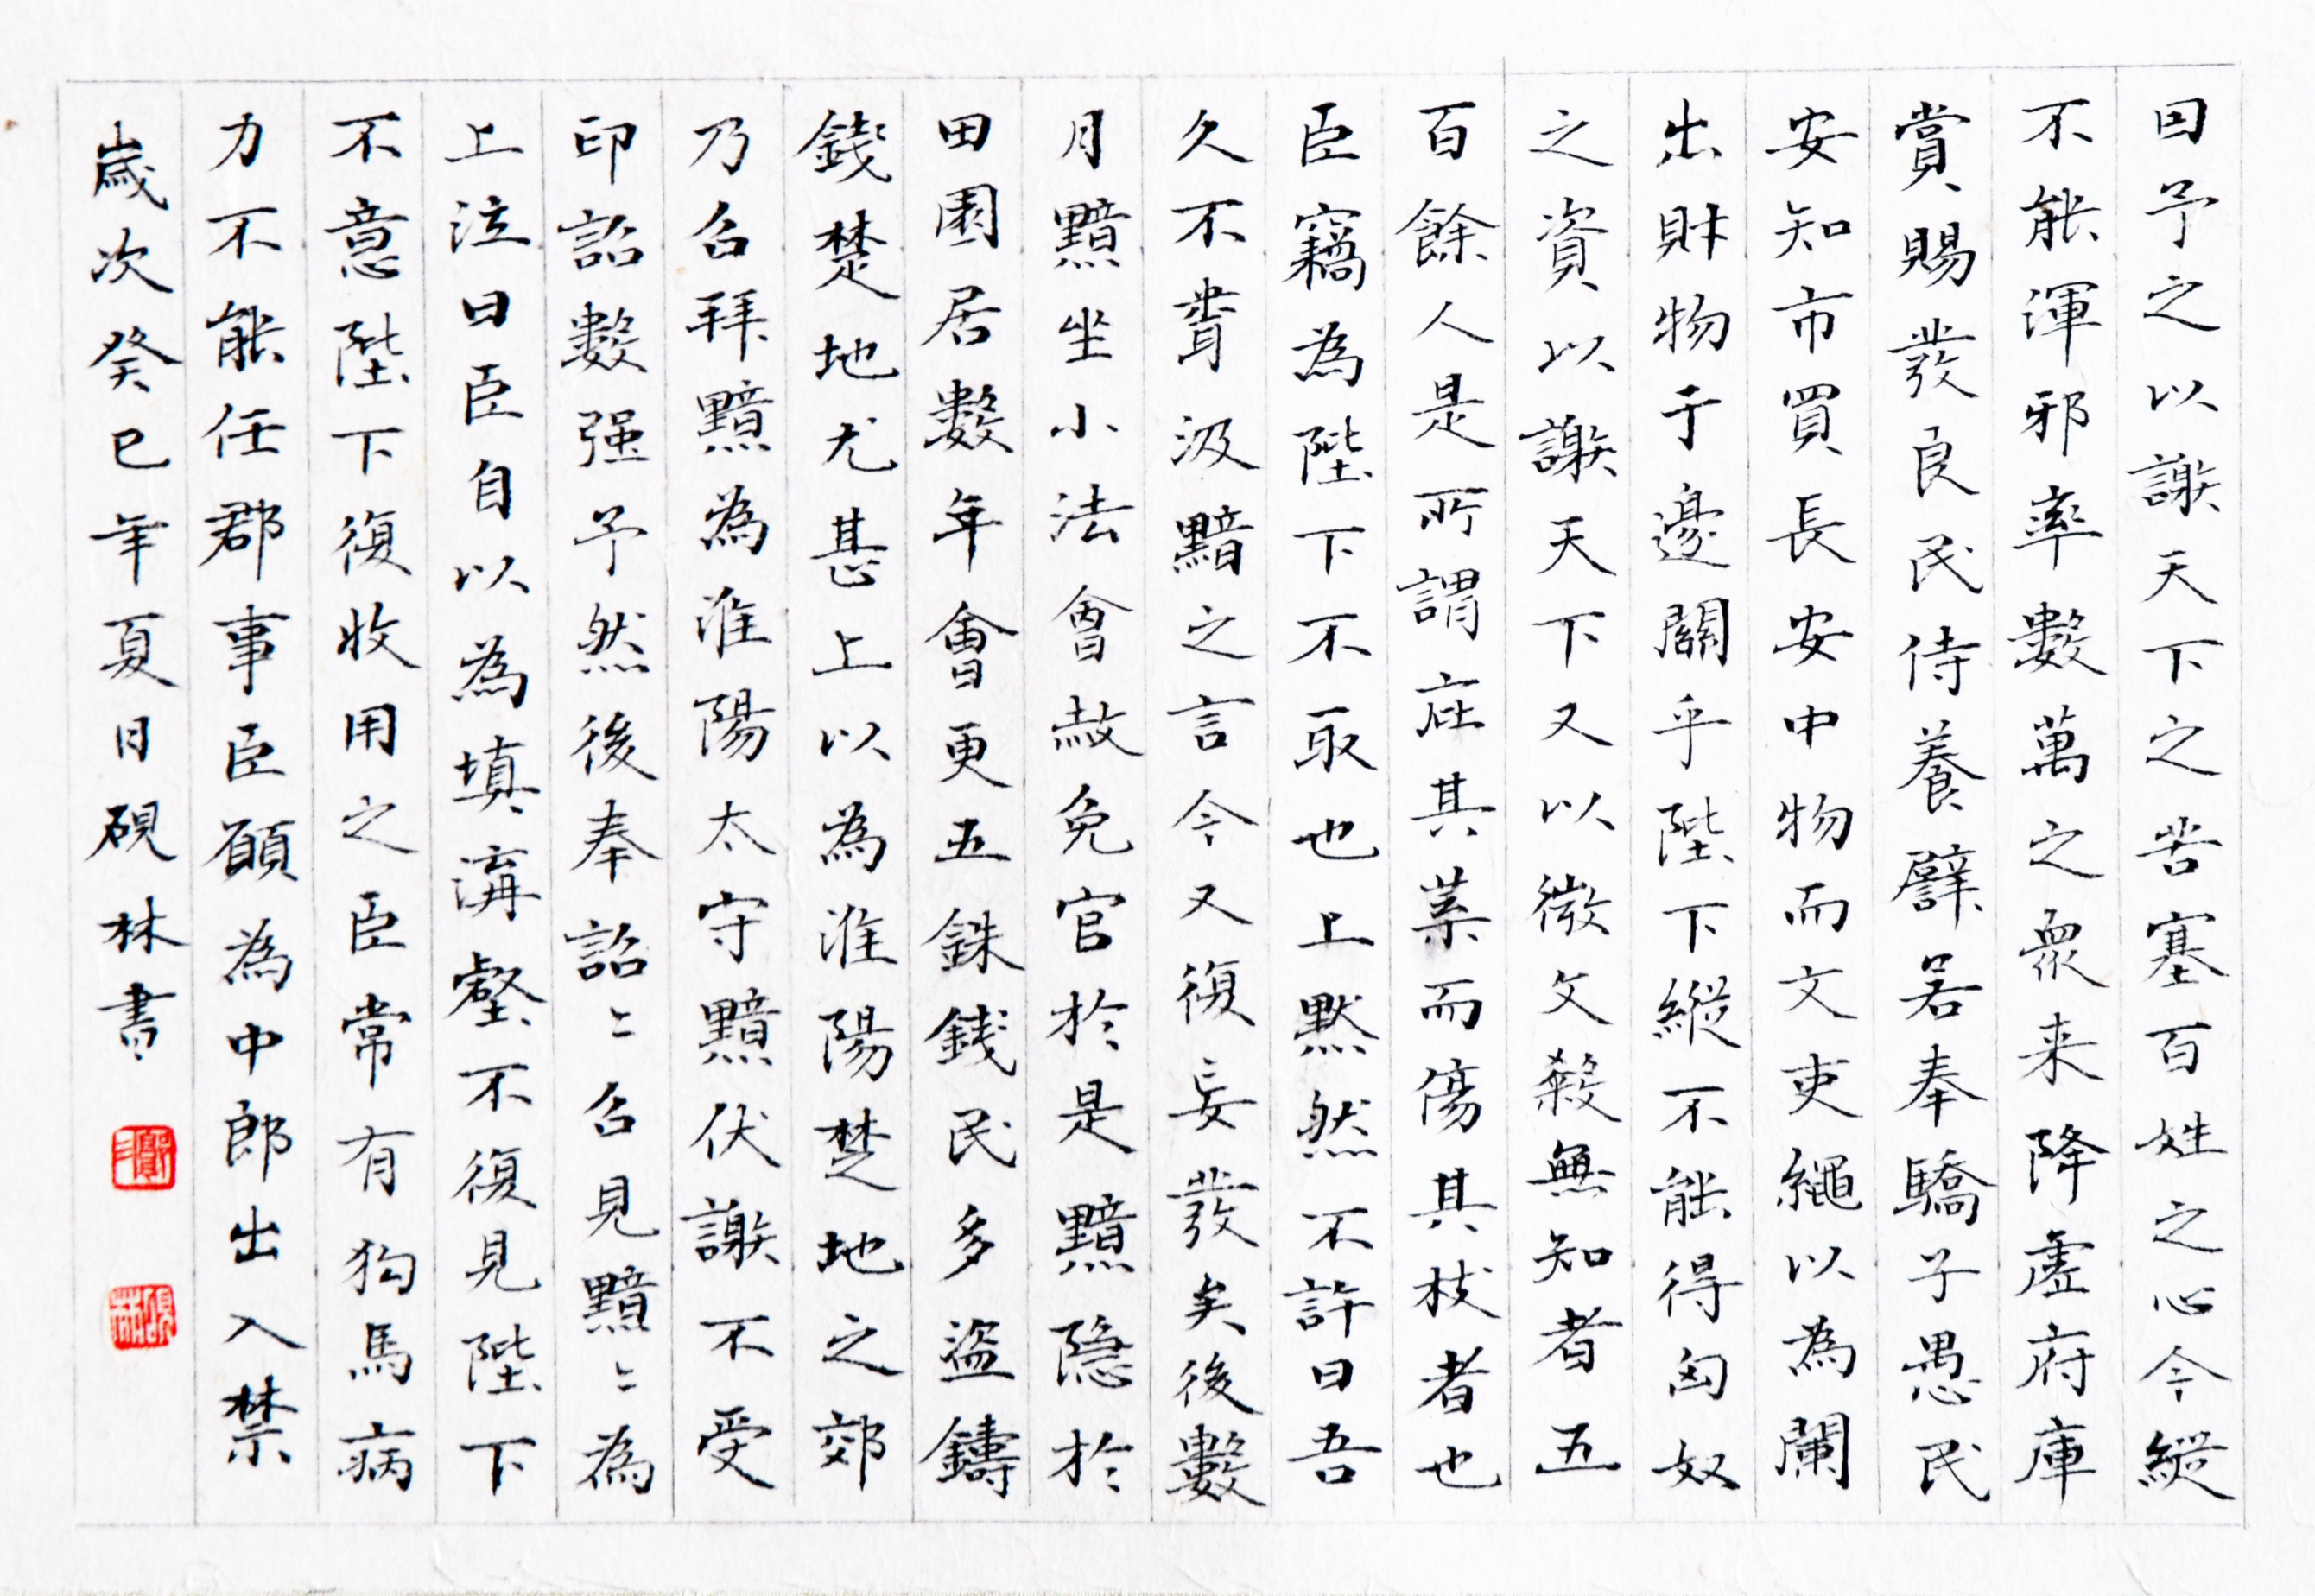 因予之以謝天下之苦塞百姓之心今縱
不能渾邪率數萬之衆来降虛府庫
賞賜發良民侍養譬若奉驕子愚民
安知市買長安中物而文吏繩以為闌
出財物于邊關乎陛下縱不能得匈奴
之資以謝天下又以微文殺無知者五
百餘人是所謂庇其葉而傷其枝者也
臣竊為陛下不取也上默然不許曰吾
久不聞汲黯之言今又復妄發矣後數
月黯坐小法會赦免官於是黯隐於
田園居數年會更五銖錢民多盜鑄
錢楚地尤甚上以為淮陽楚地之郊
乃召拜黯為淮陽太守黯伏謝不受
印詔數强予然後奉詔〻召見黯〻為
上泣曰臣自以為填溝壑不復見陛下
不意陛下復收用之臣常有狗馬病
力不能任郡事臣願為中郎出入禁
歲次癸巳年夏日硯林書
硯林